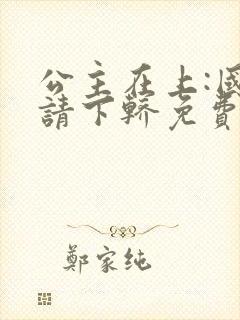 公主在上:國
請下轎免費
鄭家纯